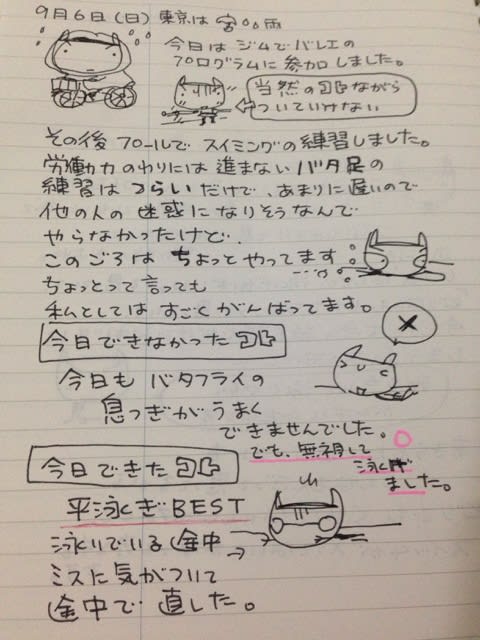 9月6日(日) 東京は 雨
今日は ジムでバレエの
プログラムに 参加しました。
当然の ながら
ついていけない
その後 プールで スイミングの 練習しました。
労働力のわりには 進まない バタ足の
練習は つらいだけで、あまりに 遅いので
他の人の 迷惑に なりそうなんで
やらなかったけど、
このごろは ちょっとやってます
ちょっとって 言っても
私としては すごく がんばってます。
今日できなかった
今日も バタフライの
息つぎが うまく
できませんでした。
でも、無視して
泳ぎ
ました。
今日できた
平泳ぎ BEST
泳いでいる 途中
ミスに 気がついて
途中で 直した。